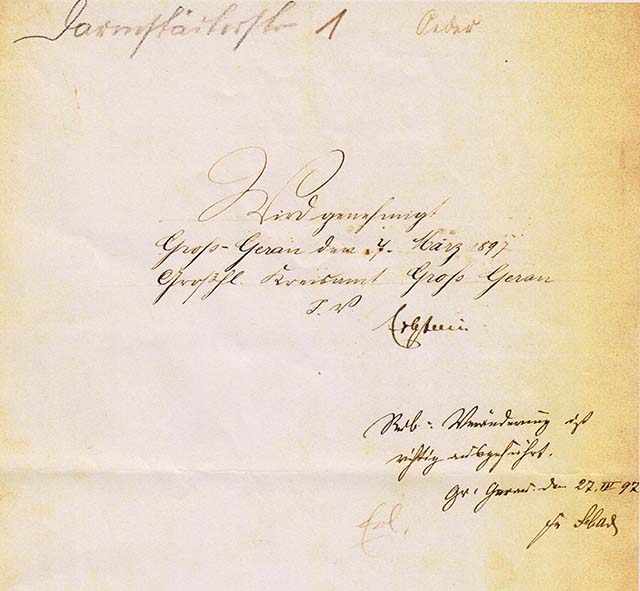 Darmstädterstr 1
Wird genehmigt
Groß-Gerau den 7. März 1897
Großhl. Kreisamt Groß Gerau
I. V
Veränderung ist
richtig ausgeführt.
Gr: Gerau den 27. IV 97